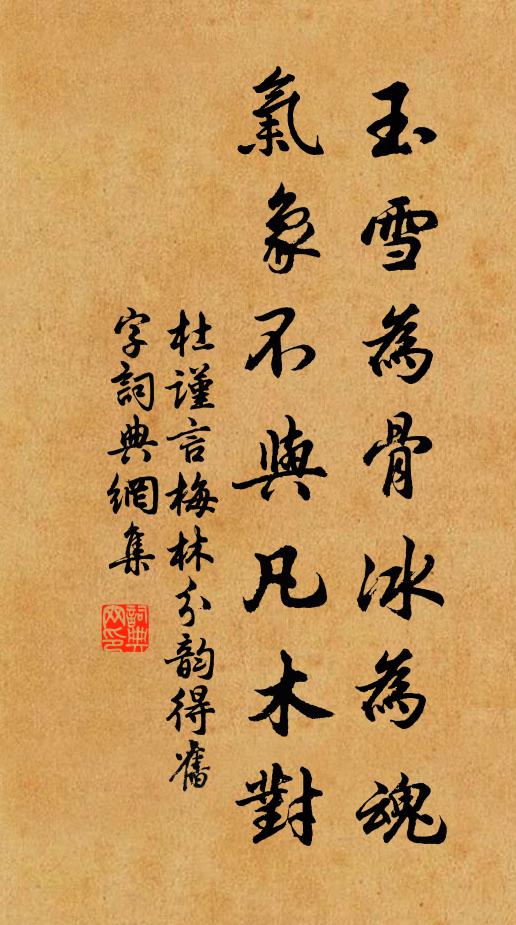 玉雪為骨冰為魂
氣象不與凡木對
杜謹言梅林分韵得舊
字詞典網集
詞典
网印